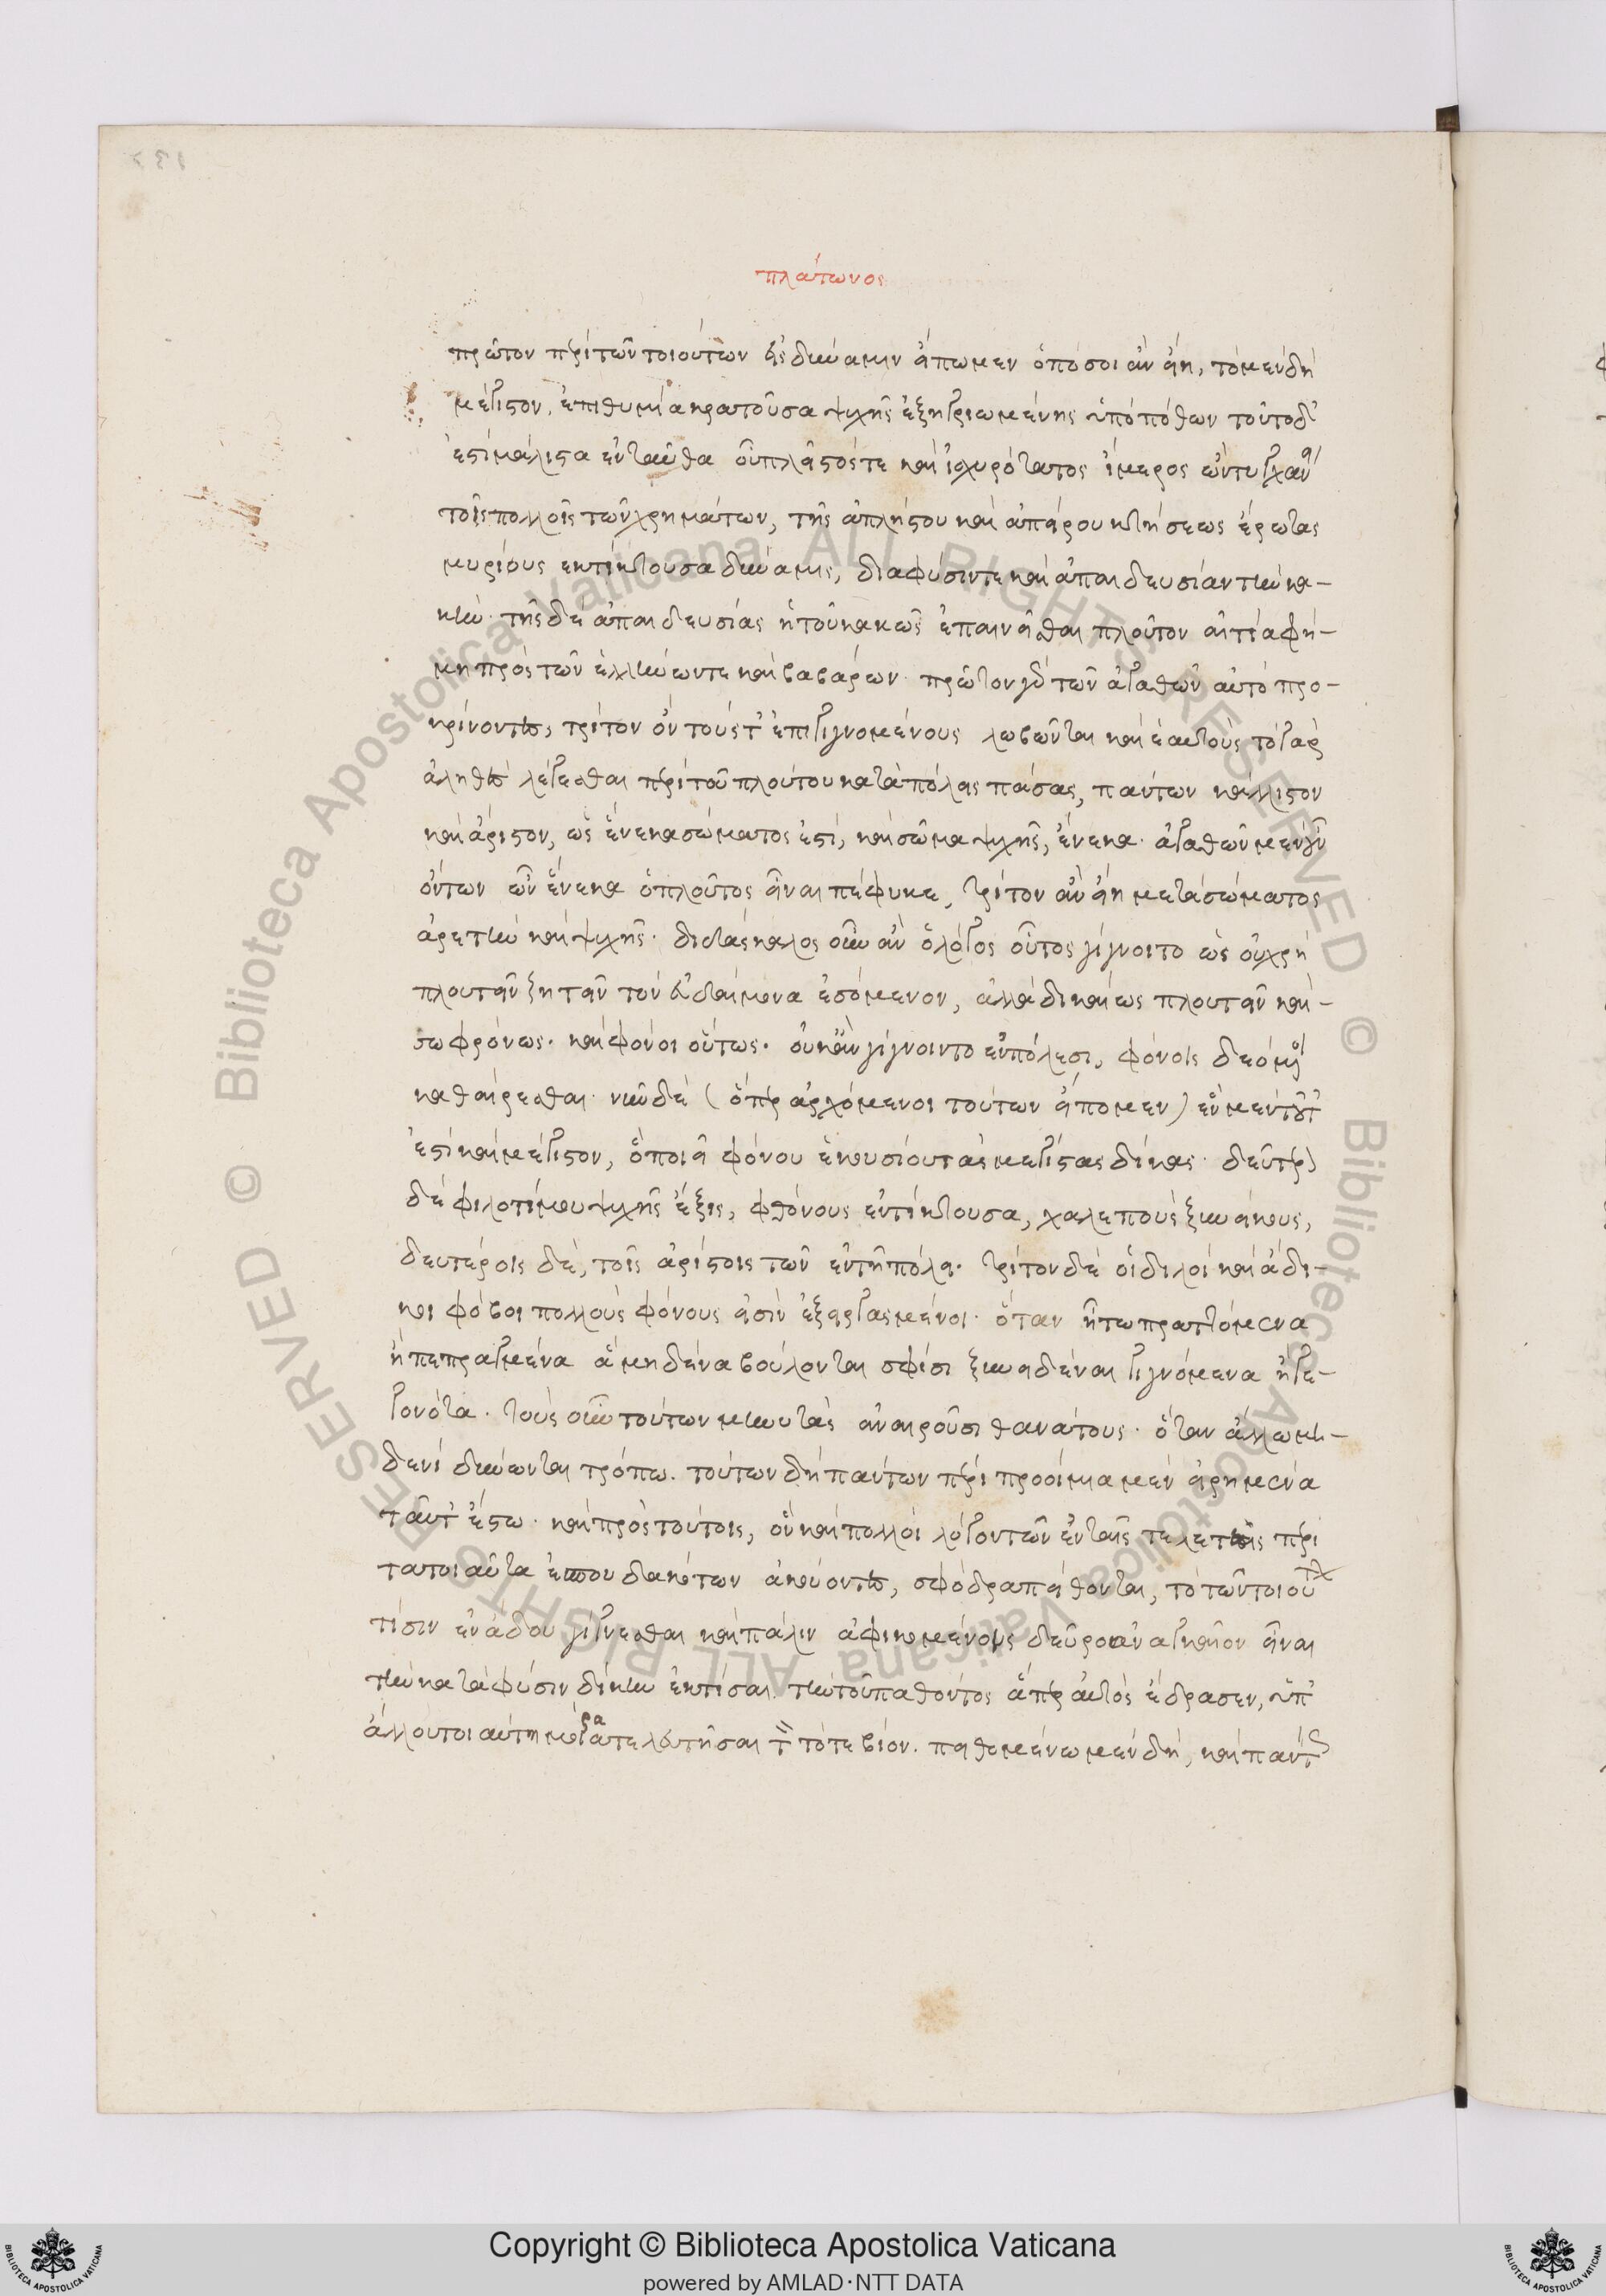 πλάτωνος
πρῶτον περὶ τῶν τοιούτων εἰς δύναμιν εἴπωμεν ὁπόσοι ἂν εἴη, τὸ μὲν δὴ
μέγιστον, ἐπιθυμία κρατοῦσα ψυχῆς ἐξηγριωμένης ὑπὸ πόθων τοῦτο δ'
ἐστὶ μάλιστα ἐνταῦθα οὗ πλεῖστός τε καὶ ἰσχυρότατος ἵμερος ὢν τυγχάνει
τοῖς πολλοῖς τῶν χρημάτων, τῆς ἀπλήστου καὶ ἀπείρου κτήσεως ἔρωτας
μυρίους ἐκτίκτουσα δύναμις, διὰ φύσιν τε καὶ ἀπαιδευσίαν τὴν κα-
κήν. τῆς δὲ ἀπαιδευσίας ἡ τοῦ κακῶς ἐπαινεῖσθαι πλοῦτον αἰτία φή-
μη πρὸς τῶν ἑλλήνων τε καὶ βαρβάρων. πρῶτον γὰρ τῶν ἀγαθῶν αὐτὸ προ-
κρίνοντες, τρίτον ὂν τούς τ' ἐπιγιγνομένους λωβῶνται καὶ ἑαυτοὺς τὸ γὰρ
ἀληθὲς λέγεσθαι περὶ τοῦ πλούτου κατὰ πόλεις πάσας, πάντων κάλλιστον
καὶ ἄριστον, ὡς ἕνεκα σώματός ἐστι, καὶ σῶμα ψυχῆς, ἕνεκα. ἀγαθῶν μὲν οὖν
ὄντων ὧν ἕνεκα ὁ πλοῦτος εἶναι πέφυκε, τρίτον ἂν εἴη μετὰ σώματος
ἀρετὴν καὶ ψυχῆς. διδάσκαλος οὖν ἂν ὁ λόγος οὗτος γίγνοιτο ὡς οὐ χρὴ
πλουτεῖν ζητεῖν τὸν εὐδαίμονα ἐσόμενον, ἀλλὰ δικαίως πλουτεῖν καὶ
σωφρόνως. καὶ φόνοι οὕτως. οὐκ ἂν γίγνοιντο ἐν πόλεσι, φόνοις δεόμενοι
καθαίρεσθαι. νῦν δὲ (ὅπερ ἀρχόμενοι τούτων εἴπομεν) ἓν μὲν τοῦτ'
ἐστὶ καὶ μέγιστον, ὃ ποιεῖ φόνου ἑκουσίου τὰς μεγίστας δίκας. δεύτερον
δὲ φιλοτίμου ψυχῆς ἕξις, φθόνους ἐντίκτουσα, χαλεποὺς ξυνοίκους,
δευτέροις δὲ, τοῖς ἀρίστοις τῶν ἐν τῇ πόλει. τρίτον δὲ οἱ δειλοὶ καὶ ἄδι-
κοι φόβοι πολλοὺς φόνους εἰσὶν ἐξειργασμένοι. ὅταν ᾖ τῳ πραττόμενα
ἢ πεπραγμένα ἃ μηδένα βούλονται σφίσι ξυνειδέναι γιγνόμενα ἢ γε-
γονότα. τοὺς οὖν τούτων μηνυτὰς ἀναιροῦσι θανάτοις. ὅταν ἄλλῳ μη-
δενὶ δύνωνται τρόπῳ. τούτων δὴ πάντων περὶ προοίμια μὲν εἰρημένα
ταῦτ' ἔστω. καὶ πρὸς τούτοις, ὃν καὶ πολλοὶ λόγον τῶν ἐν ταῖς τελεταῖς περὶ
τὰ τοιαῦτα ἐσπουδακότων ἀκούοντες, σφόδρα πείθονται, τὸ τῶν τοιούτων
τίσιν ἐν ἅδου γίγνεσθαι καὶ πάλιν ἀφικομένοις δεῦρο ἀναγκαῖον εἶναι
τὴν κατὰ φύσιν δίκην ἐκτίσαι. τὴν τοῦ παθόντος ἅπερ αὐτὸς ἔδρασεν, ὑπ'
ἄλλου τοιαύτῃ μοίρᾳ τελευτῆσαι τὸν τότε βίον. πειθομένῳ μὲν δὴ, καὶ πάντως